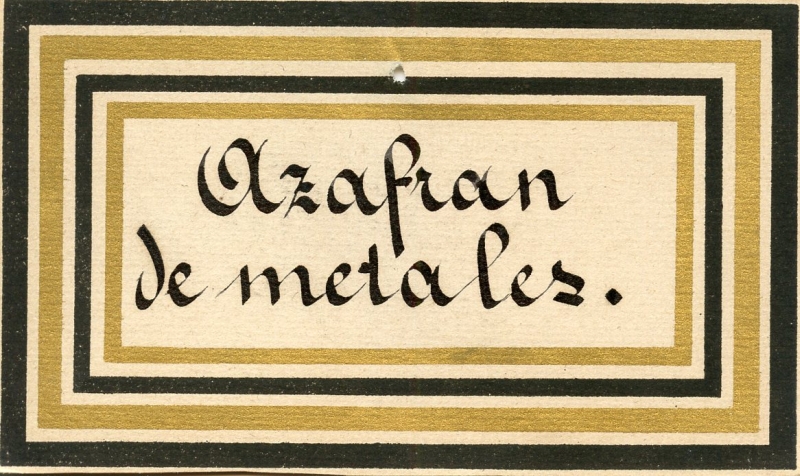 Azafran
de metales.